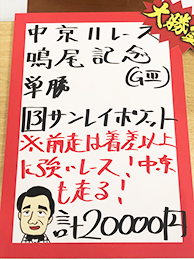 大勝負
中京11レース
鳴尾記念
(GⅢ)
単勝
13サンレイポケット
※前走は着差以上
に強いレース!中京
も走る!
計20000円